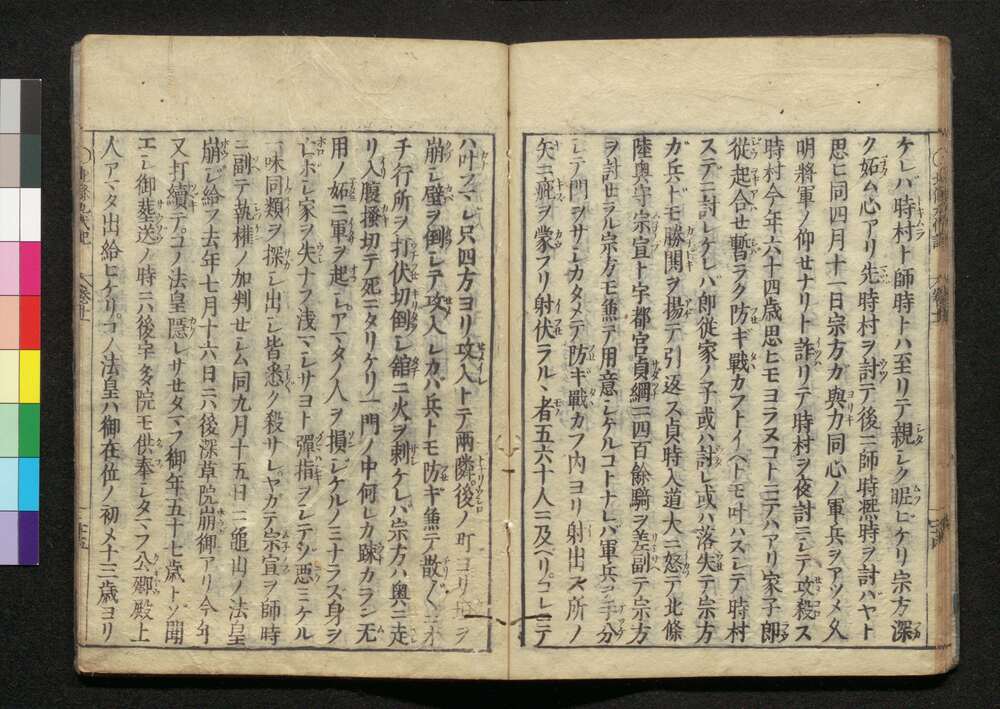 ケレバ時村ト師時トハ至リテ親シク眤ビケリ宗方深
ク妬ム心アリ先時村ヲ討テ後ニ師時凞時ヲ討バヤト
思ヒ同四月十一日宗方ガ與力同心ノ軍兵ヲアツメ久
明將軍ノ仰セナリト詐リテ時村ヲ夜討ニシテ攻殺ス
時村今年六十四歳思ヒモヨラヌコトニテハアリ家子郎
從起合セ暫ラク防ギ戰カフトイヘトモ叶ハスシテ時村
ステニ討レケレバ郎從家ノ子或ハ討レ或ハ落失テ宗方
ガ兵ドモ勝鬨ヲ揚テ引返ス貞時入道大ニ怒テ北條
陸奥守宗宣ト宇都宮貞綱ニ四百餘騎ヲ差副テ宗方
ヲ討セラル宗方モ兼テ用意シケルコトナレバ軍兵ヲ手分
シテ門ヲサシカタメテ防ギ戰カフ内ヨリ射出ス所ノ
矢ニ疵ヲ蒙フリ射伏ラルヽ者五六十人ニ及ベリコレニテ
ハ叶フマジ只四方ヨリ攻入トテ兩隣後ノ町ヨリ垣ヲ
崩シ壁ヲ倒シテ攻入シカバ兵トモ防ギ兼テ散〴〵ニ
チ行所ヲ打伏切倒シ舘ニ火ヲ刺ケレバ宗方ハ奥ニ走
リ入腹搔切テ死ニタリケリ一門ノ中何レカ踈カラン无
用ノ妬ニ軍ヲ起シアマタノ人ヲ損シケルノミナラス身ヲ
亡ボシ家ヲ失ナフ浅マシサヨト彈指ヲシテゾ悪ミケル
一味同類ヲ探シ出シ皆悉ク殺サレヤガテ宗宣ヲ師時
ニ副テ執權ノ加判セシム同九月十五日ニ龜山ノ法皇
崩シ給フ去年七月十六日ニハ後深草院崩御アリ今年
又打續テコノ法皇隱レサセタマフ御年五十七歳トゾ聞
エシ御葬送ノ時ニハ後宇多院モ供奉シタマフ公卿殿上
人アマタ出給ヒケリコノ法皇ハ御在位ノ初メ十三歳ヨリ